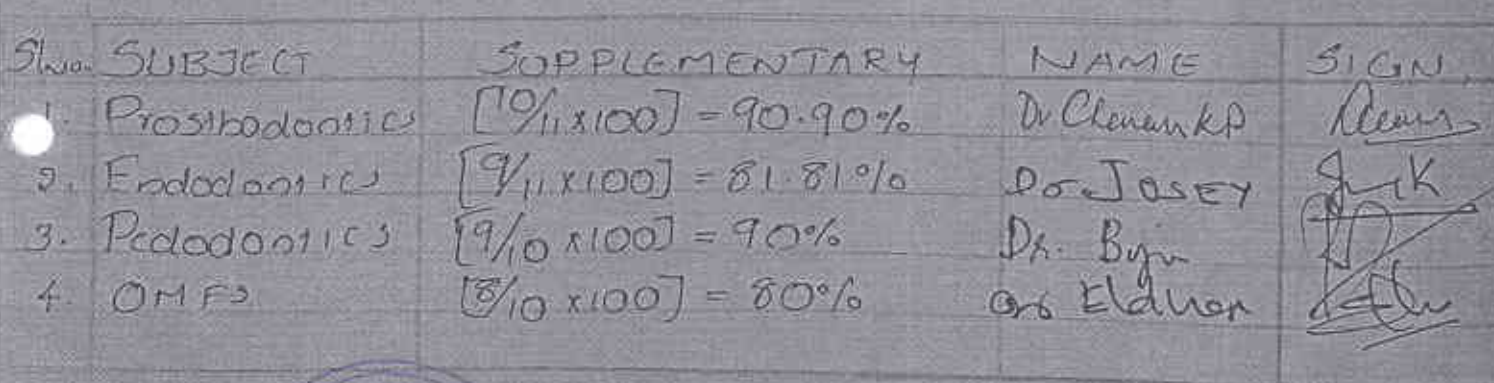 Sl.no. SUBJECT SUPPLEMENTARY NAME SIGN
1. Prosthodontics [10/11x100] = 90.90% Dr
2. Endodontics [9/11x100] = 81.81% Dr Josey
3. Pedodontics [9/10x100] = 90% Dr. Byju
4. OMFS [8/10x100] = 80% Dr